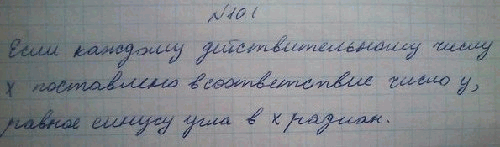 №101
Если каждому действительному числу
x поставлено в соответствие число y,
равное синусу угла в x радиан.